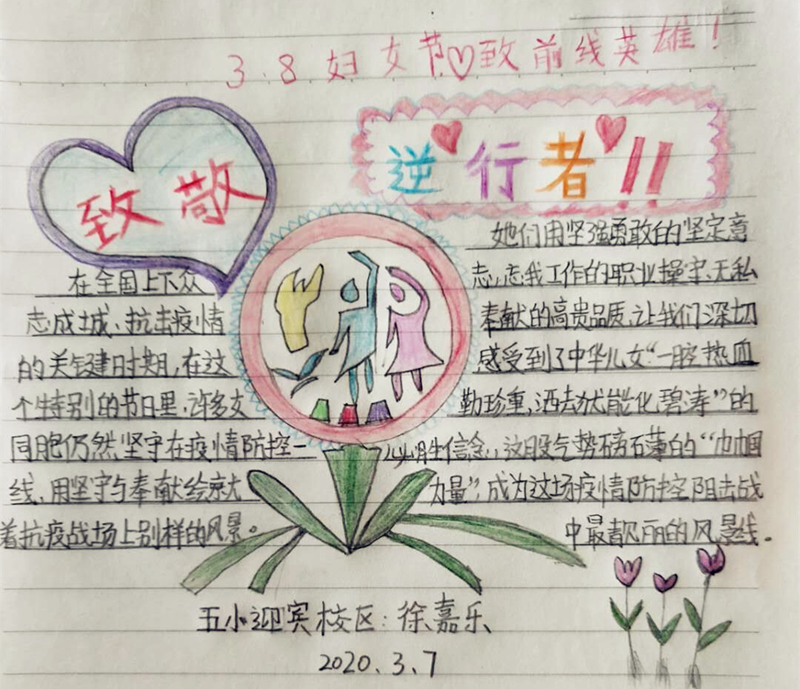 3.8妇女节致前线英雄！
致敬
逆行者!!
在全国上下众
志成城、抗击疫情
的关键时期,在这
个特别的节日里,许多女
同胞仍然坚守在疫情防控一
线,用坚守与奉献绘就
着抗疫战场上别样的风景。
她们用坚强勇敢的坚定意
志,忘我工作的职业操守、无私
奉献的高贵品质,让我们深切
感受到了中华儿女“一腔热血
勤珍重,洒去犹能化碧涛”的
必胜信念,这股气势磅礴的“巾帼
力量”,成为这场疫情防控阻击战
中最靓丽的风景线。
五小迎宾校区:徐嘉乐
2020.3.7